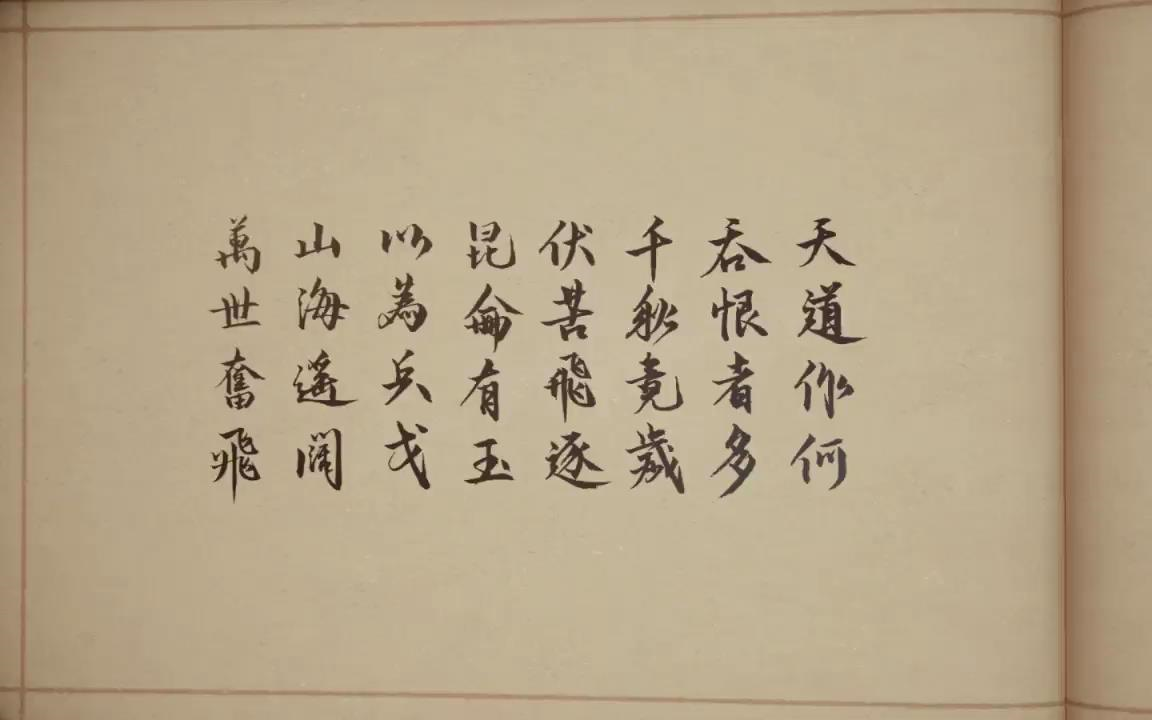 天道作何
吞恨者多
千秋竟歲
伏苦飛逐
昆侖有玉
以為兵戈
山海遥闊
萬世奮飛